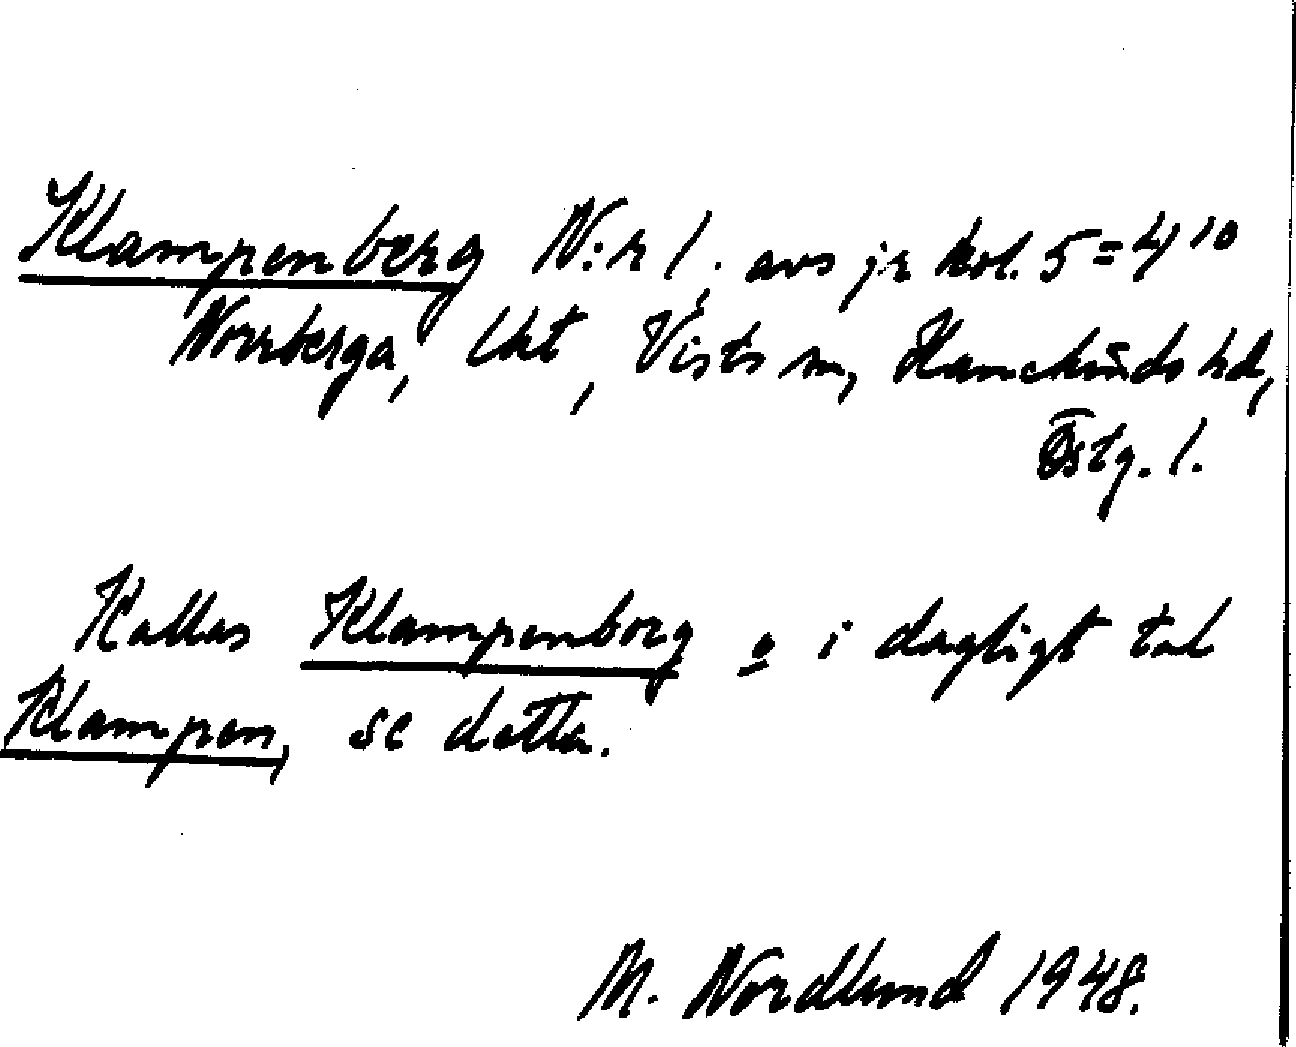 Klampenberg N:r 1. avs jr kol. 5 = 4¹⁰
Norrberga, lht, Vists sn, Hanekinds hd,
Östg. l.
Kallas Klampenborg o i dagligt tal
Klampen, se detta.
M. Nordlund 1948.